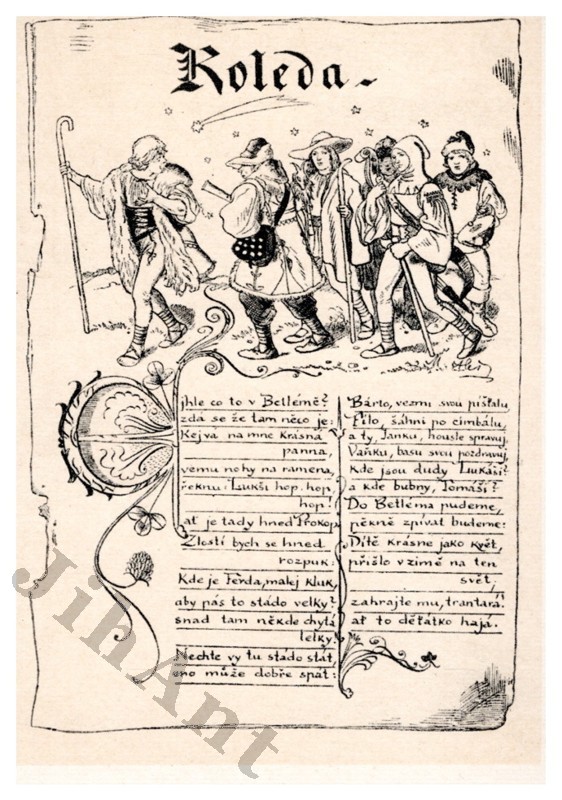 Koleda
Jhle co to v Betlémě?
zdá se že tam něco je:
Kejvá na mne krásná
panna,
vemu nohy na ramena,
řeknu: Lukši hop, hop,
hop!
ať je tady hned Prokop
Zlostí bych se hned
rozpuk:
Kde je Ferda, malej kluk,
aby pás to stádo velký?
snad tam někde chytá
lelky.
Nechte vy tu stádo stát,
ono může dobře spát:
Bárto, vezmi svou píšťalu,
Filo, šáhni po cimbálu,
a ty, Janku, housle spravuj,
Vaňku, basu svou pozdravuj,
kde jsou dudy Lukáši?
a kde bubny, Tomáši?
Do Betléma pudeme,
pěkně zpívat budeme:
Dítě krásné jako květ,
přišlo v zimě na ten
svět,
zahrajte mu, trantará!
ať to děťátko hajá.
JihAnt